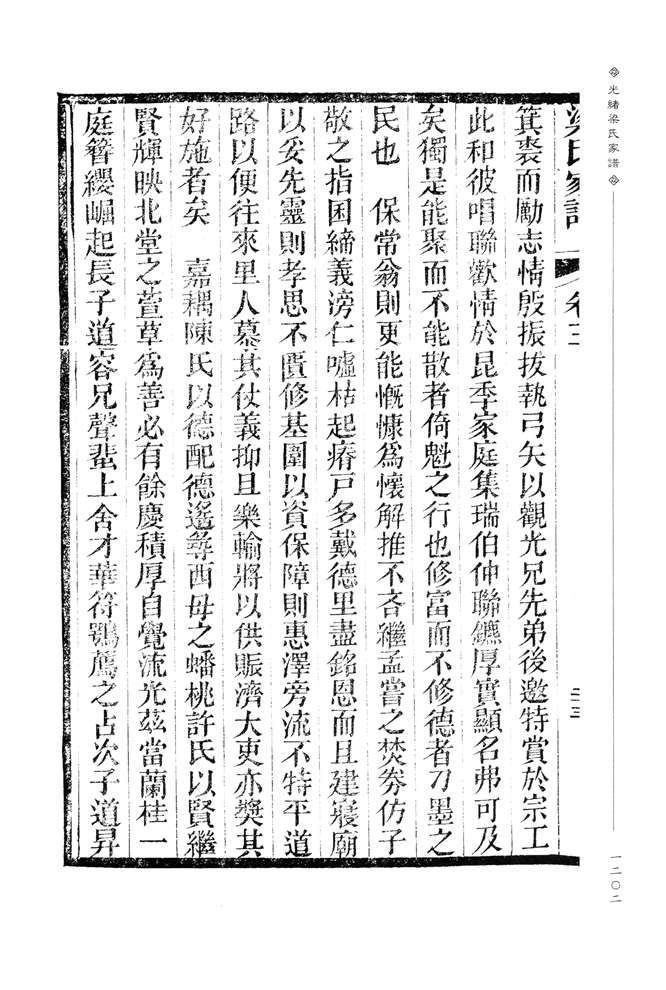 光緒梁氏家譜
一二〇二
梁氏家譜 卷十二 二十三
箕裘而勵志情殷振拔執弓矢以觀光兄先弟後邀特賞於宗工
此和彼唱聯歡情於昆季家庭集瑞伯仲聯鑣厚實顯名弗可及
矣獨是能聚而不能散者倚魁之行也修富而不修德者刀墨之
民也 保常翁則更能慨慷爲懷解推不吝繼孟嘗之焚券仿子
敬之指囷締義滂仁噓枯起瘠戸多戴德里盡銘恩而且建寢廟
以妥先靈則孝思不匱修基圍以資保障則惠澤旁流不特平道
路以便往來里人慕其仗義抑且樂輸將以供賑濟大吏亦獎其
好施者矣 嘉耦陳氏以德配德遙尋西母之蟠桃許氏以賢繼
賢輝映北堂之萱草爲善必有餘慶積厚自覺流光茲當蘭桂一
庭簪纓崛起長子道容兄聲蜚上舍才華符鶚薦之占次子道昇